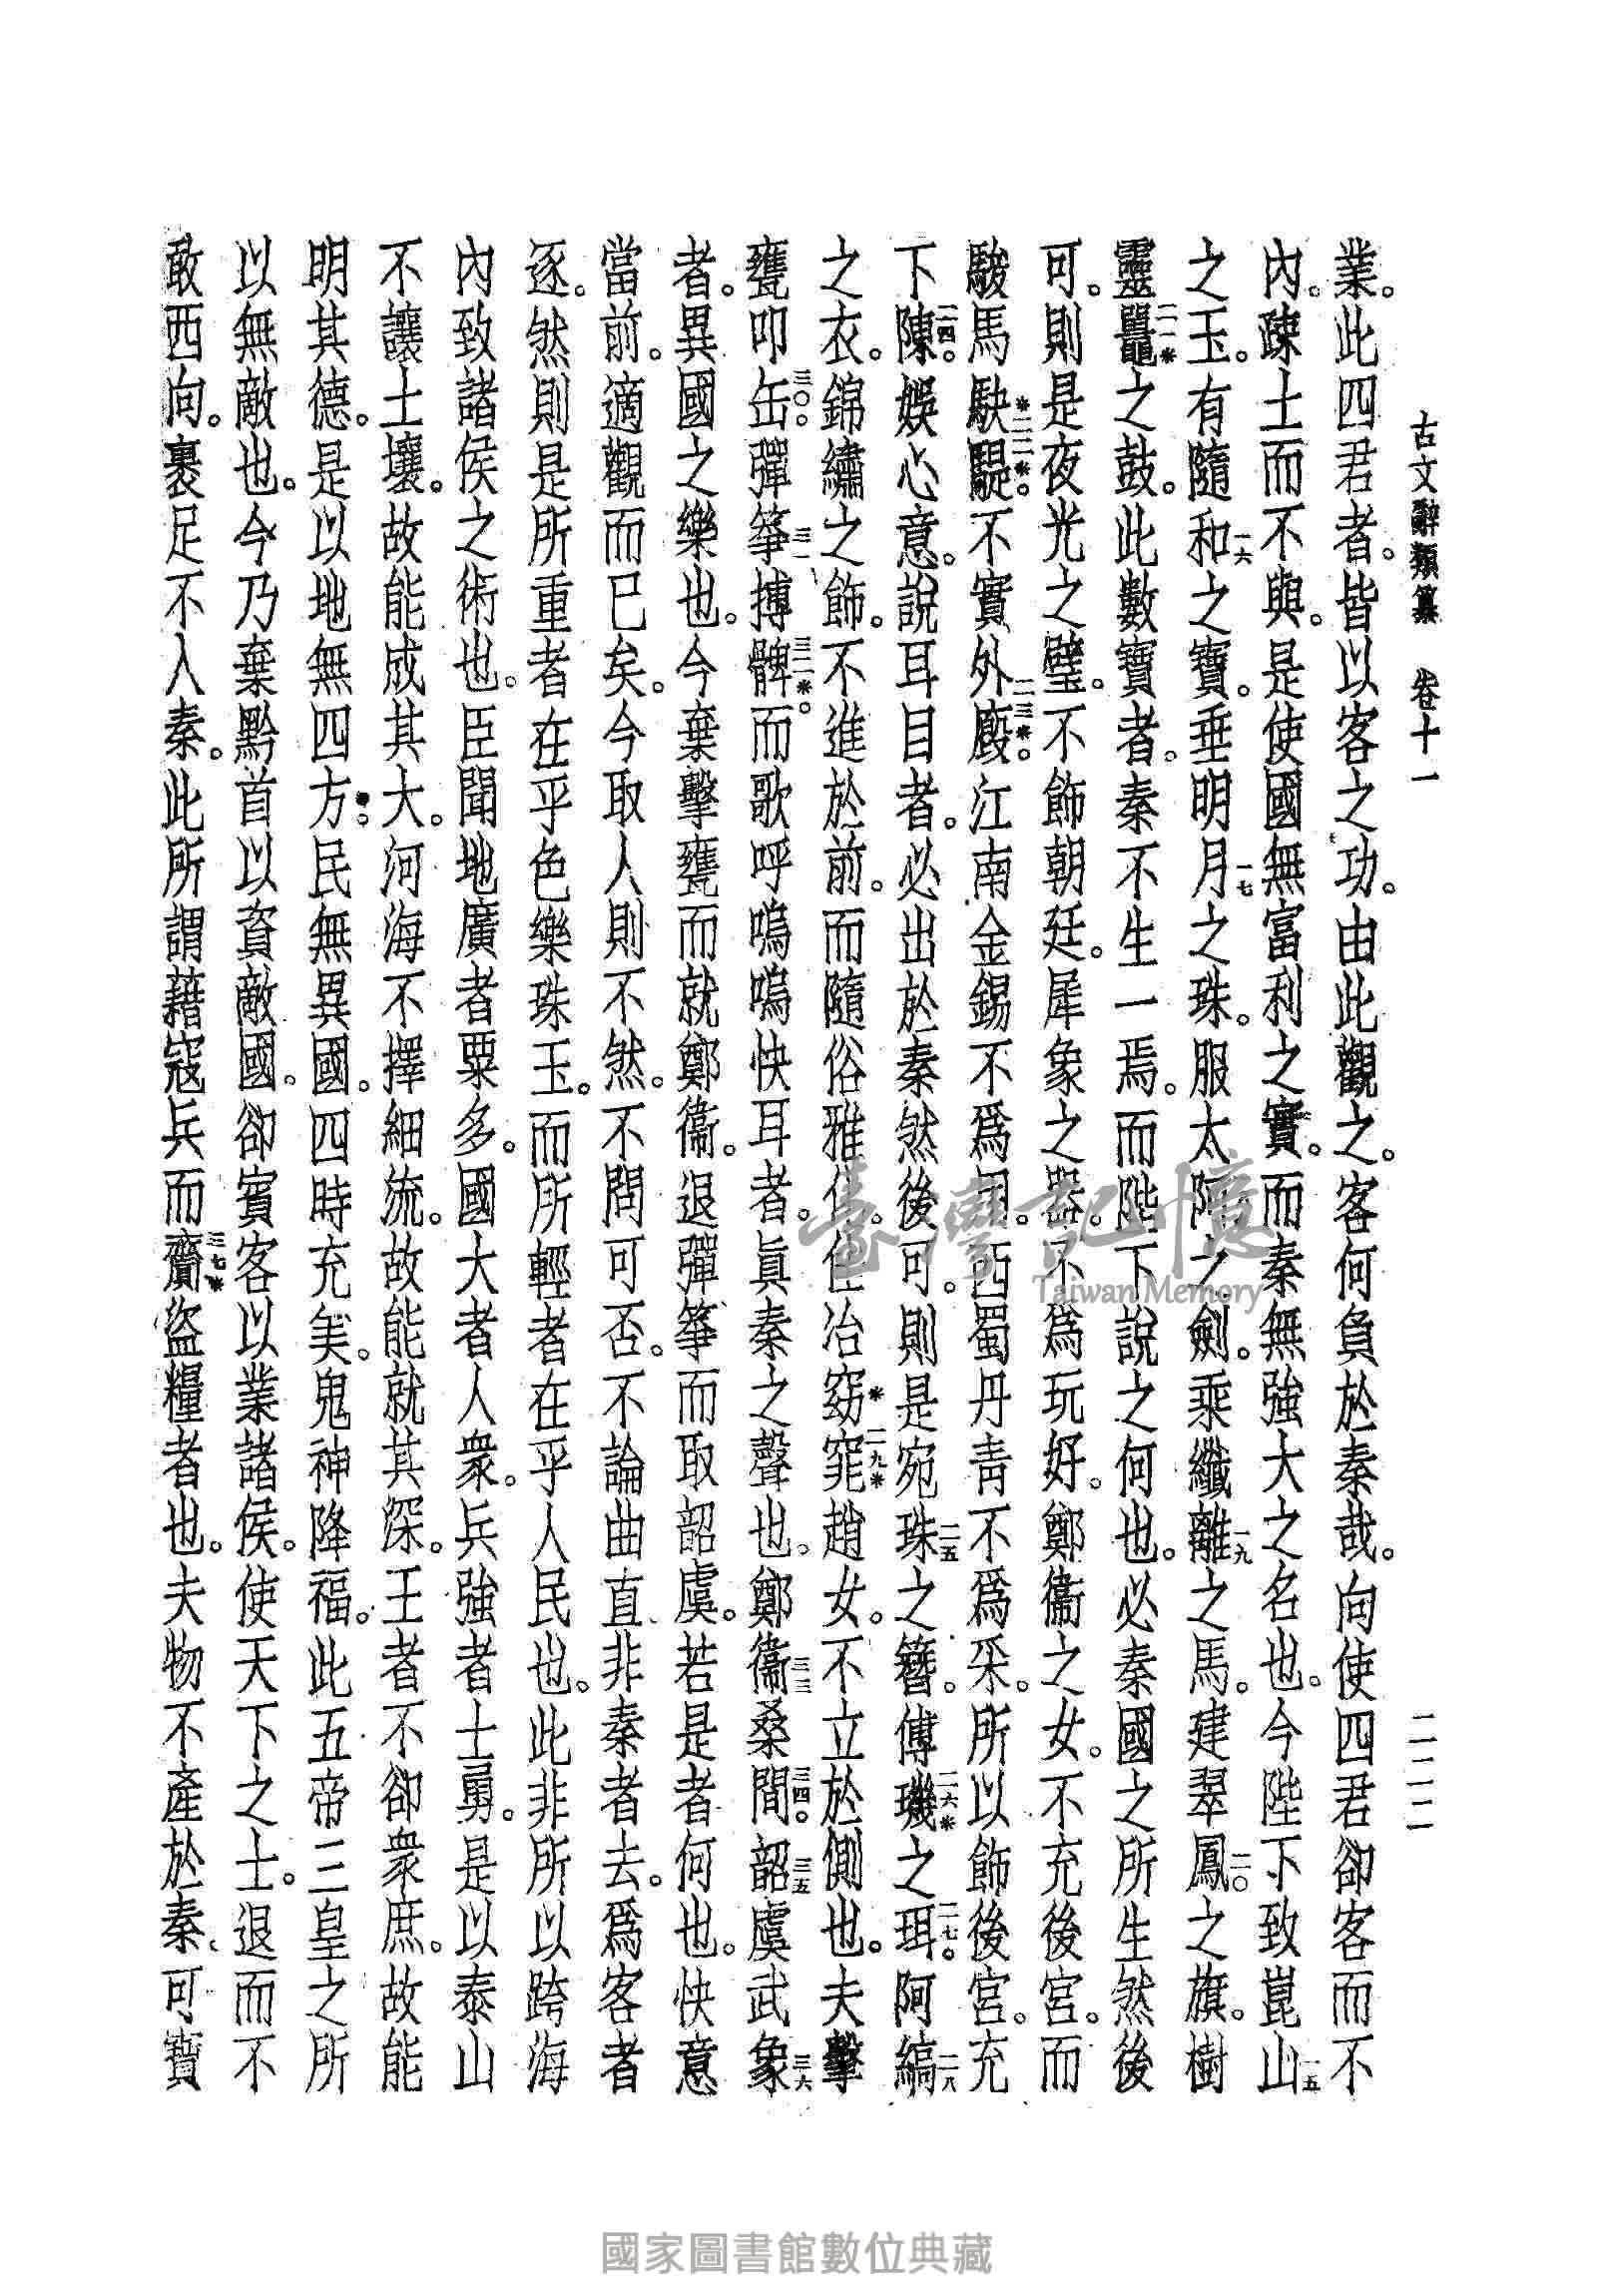 古文辭類纂　卷十一　二二二
業。此四君者。皆以客之功。由此觀之。客何負於秦哉。向使四君卻客而不
內。疎士而不與。是使國無富利之實。而秦無強大之名也。今陛下致崑山一五
之玉。有隨和一六之寶。垂明月一七之珠。服太阿之劍。乘纖離一九之馬。建翠鳳二〇之旗。樹
靈鼉二一※之鼓。此數寶者。秦不生一焉。而陛下說之何也。必秦國之所生然後
可。則是夜光之璧。不飾朝廷。犀象之器。不爲玩好。鄭衞之女。不充後宮。而
駿馬駃騠※二二※。不實外廄二三※。江南金錫不爲用。西蜀丹靑不爲采。所以飾後宮。充
下陳二四。娛心意。說耳目者。必出於秦然後可。則是宛珠二五之簪。傅璣二六※之珥二七。阿縞二八
之衣。錦繡之飾。不進於前。而隨俗雅化。佳冶窈窕※二九※趙女。不立於側也。夫擊
甕叩缶三〇。彈箏三一搏髀三二※。而歌呼嗚嗚快耳者。眞秦之聲也。鄭衞三三桑間三四。韶三五虞武象三六
者。異國之樂也。今棄擊甕而就鄭衞。退彈箏而取韶虞。若是者何也。快意
當前。適觀而已矣。今取人則不然。不問可否。不論曲直、非秦者去。爲客者
逐。然則是所重者在乎色樂珠玉。而所輕者在乎人民也。此非所以跨海
內致諸侯之術也。臣聞地廣者粟多。國大者人衆。兵強者士勇。是以泰山
不讓土壤。故能成其大。河海不擇細流。故能就其深。王者不卻衆庶。故能
明其德。是以地無四方。民無異國。四時充美。鬼神降福。此五帝三皇之所
以無敵也。今乃棄黔首以資敵國。卻賓客以業諸侯。使天下之士。退而不
敢西向。裹足不入秦。此所謂藉寇兵而齎三七※盜糧者也。夫物不產於秦、可寶
臺灣記憶
Taiwan Memory
國家圖書館數位典藏